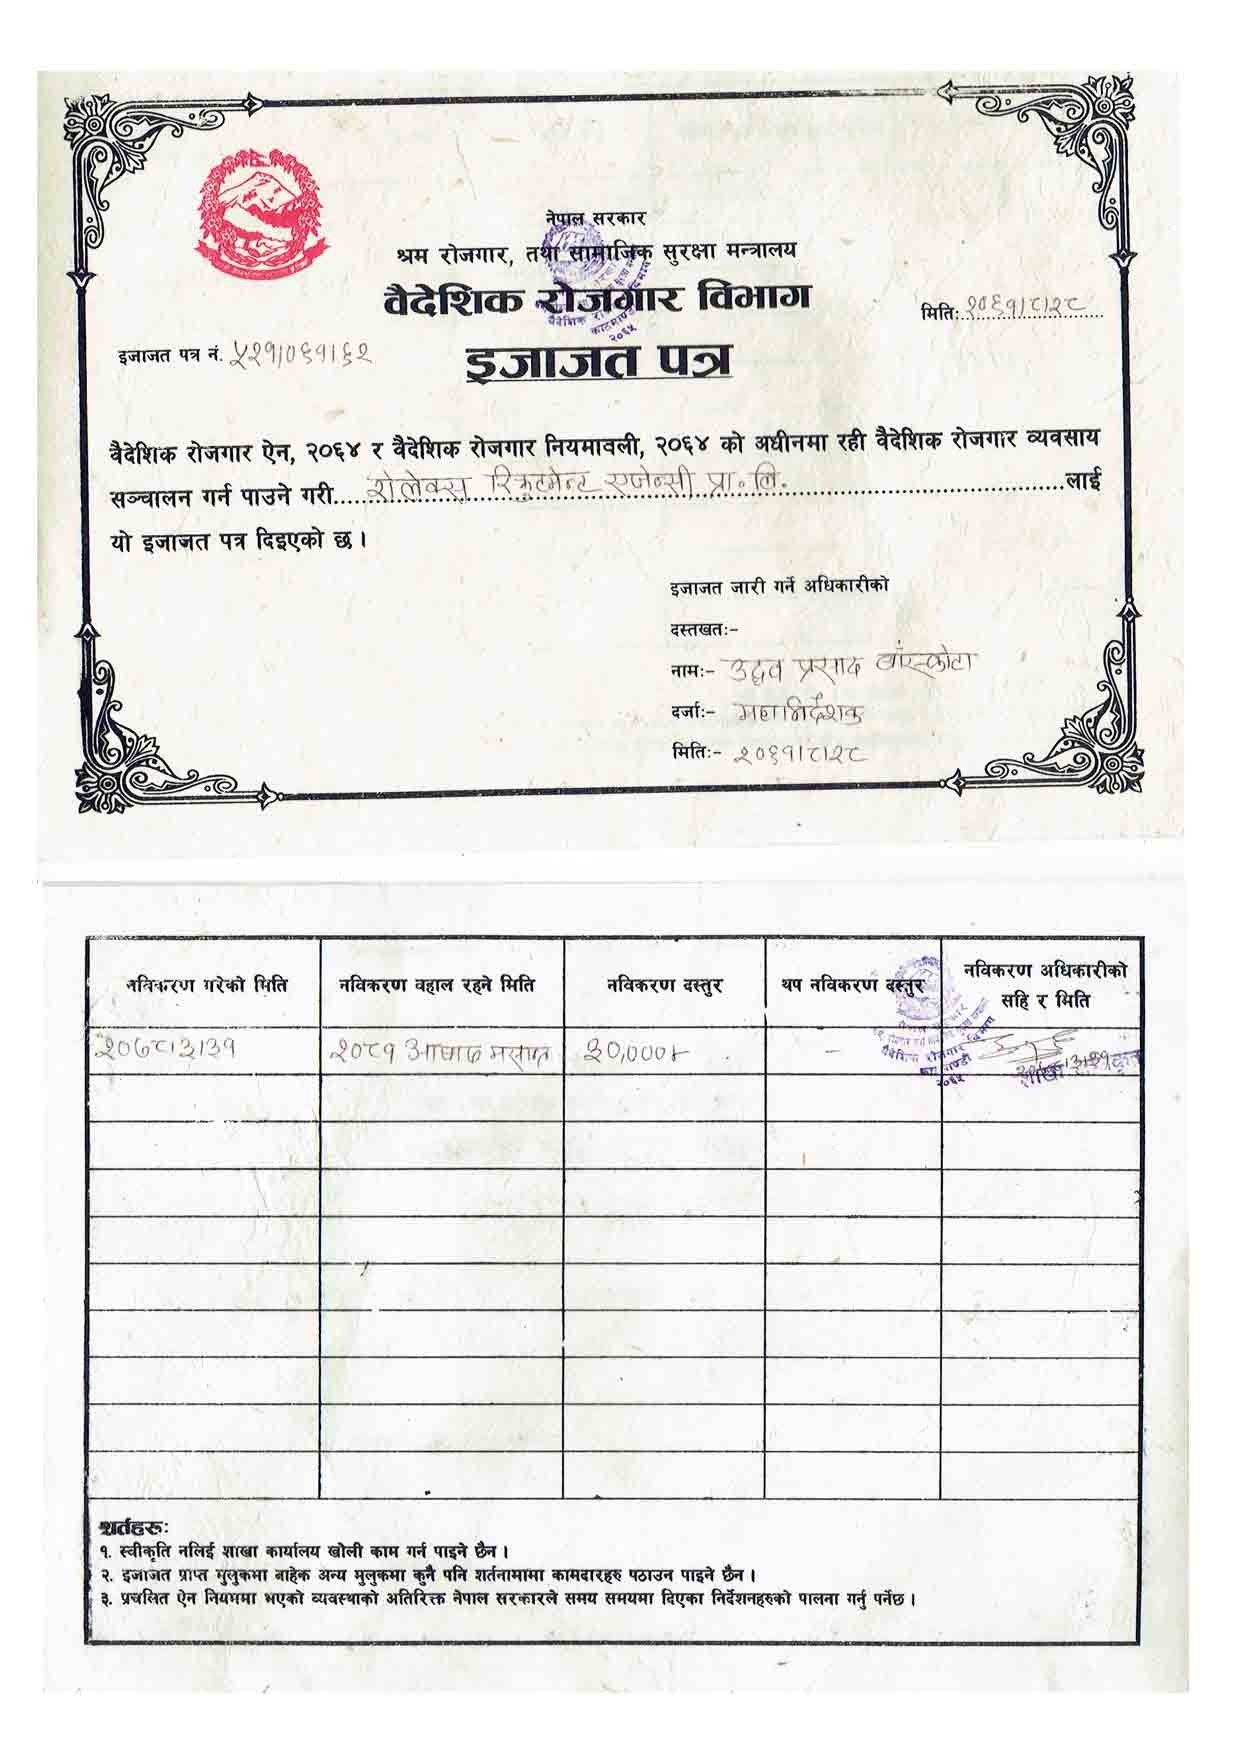 नेपाल सरकार
श्रम रोजगार, तथा सामाजिक सुरक्षा मन्त्रालय
वैदेशिक रोजगार विभाग
मितिः २०६१।८।२८
इजाजत पत्र नं. ५२१/०६१/६२
इजाजत पत्र
वैदेशिक रोजगार ऐन, २०६४ र वैदेशिक रोजगार नियमावली, २०६४ को अधीनमा रही वैदेशिक रोजगार व्यवसाय
सञ्चालन गर्न पाउने गरी रोलेक्स रिक्रुटमेन्ट एजेन्सी प्रा.लि. लाई
यो इजाजत पत्र दिइएको छ।
इजाजत जारी गर्ने अधिकारीको
दस्तखतः-
नामः- उद्धव प्रसाद बाँस्कोटा
दर्जाः- महानिर्देशक
मितिः- २०६१।८।२८
नविकरण गरेको मिति नविकरण वहाल रहने मिति नविकरण दस्तुर थप नविकरण दस्तुर नविकरण अधिकारीको सहि र मिति
२०७८।३।३१ २०८१ आषाढ मसान्त ३०,०००/- -
शर्तहरूः
१. स्वीकृति नलिई शाखा कार्यालय खोली काम गर्न पाइने छैन।
२. इजाजत प्राप्त मुलुकमा बाहेक अन्य मुलुकमा कुनै पनि शर्तनामामा कामदारहरु पठाउन पाइने छैन।
३. प्रचलित ऐन नियममा भएको व्यवस्थाको अतिरिक्त नेपाल सरकारले समय समयमा दिएका निर्देशनहरुको पालना गर्नु पर्नेछ।